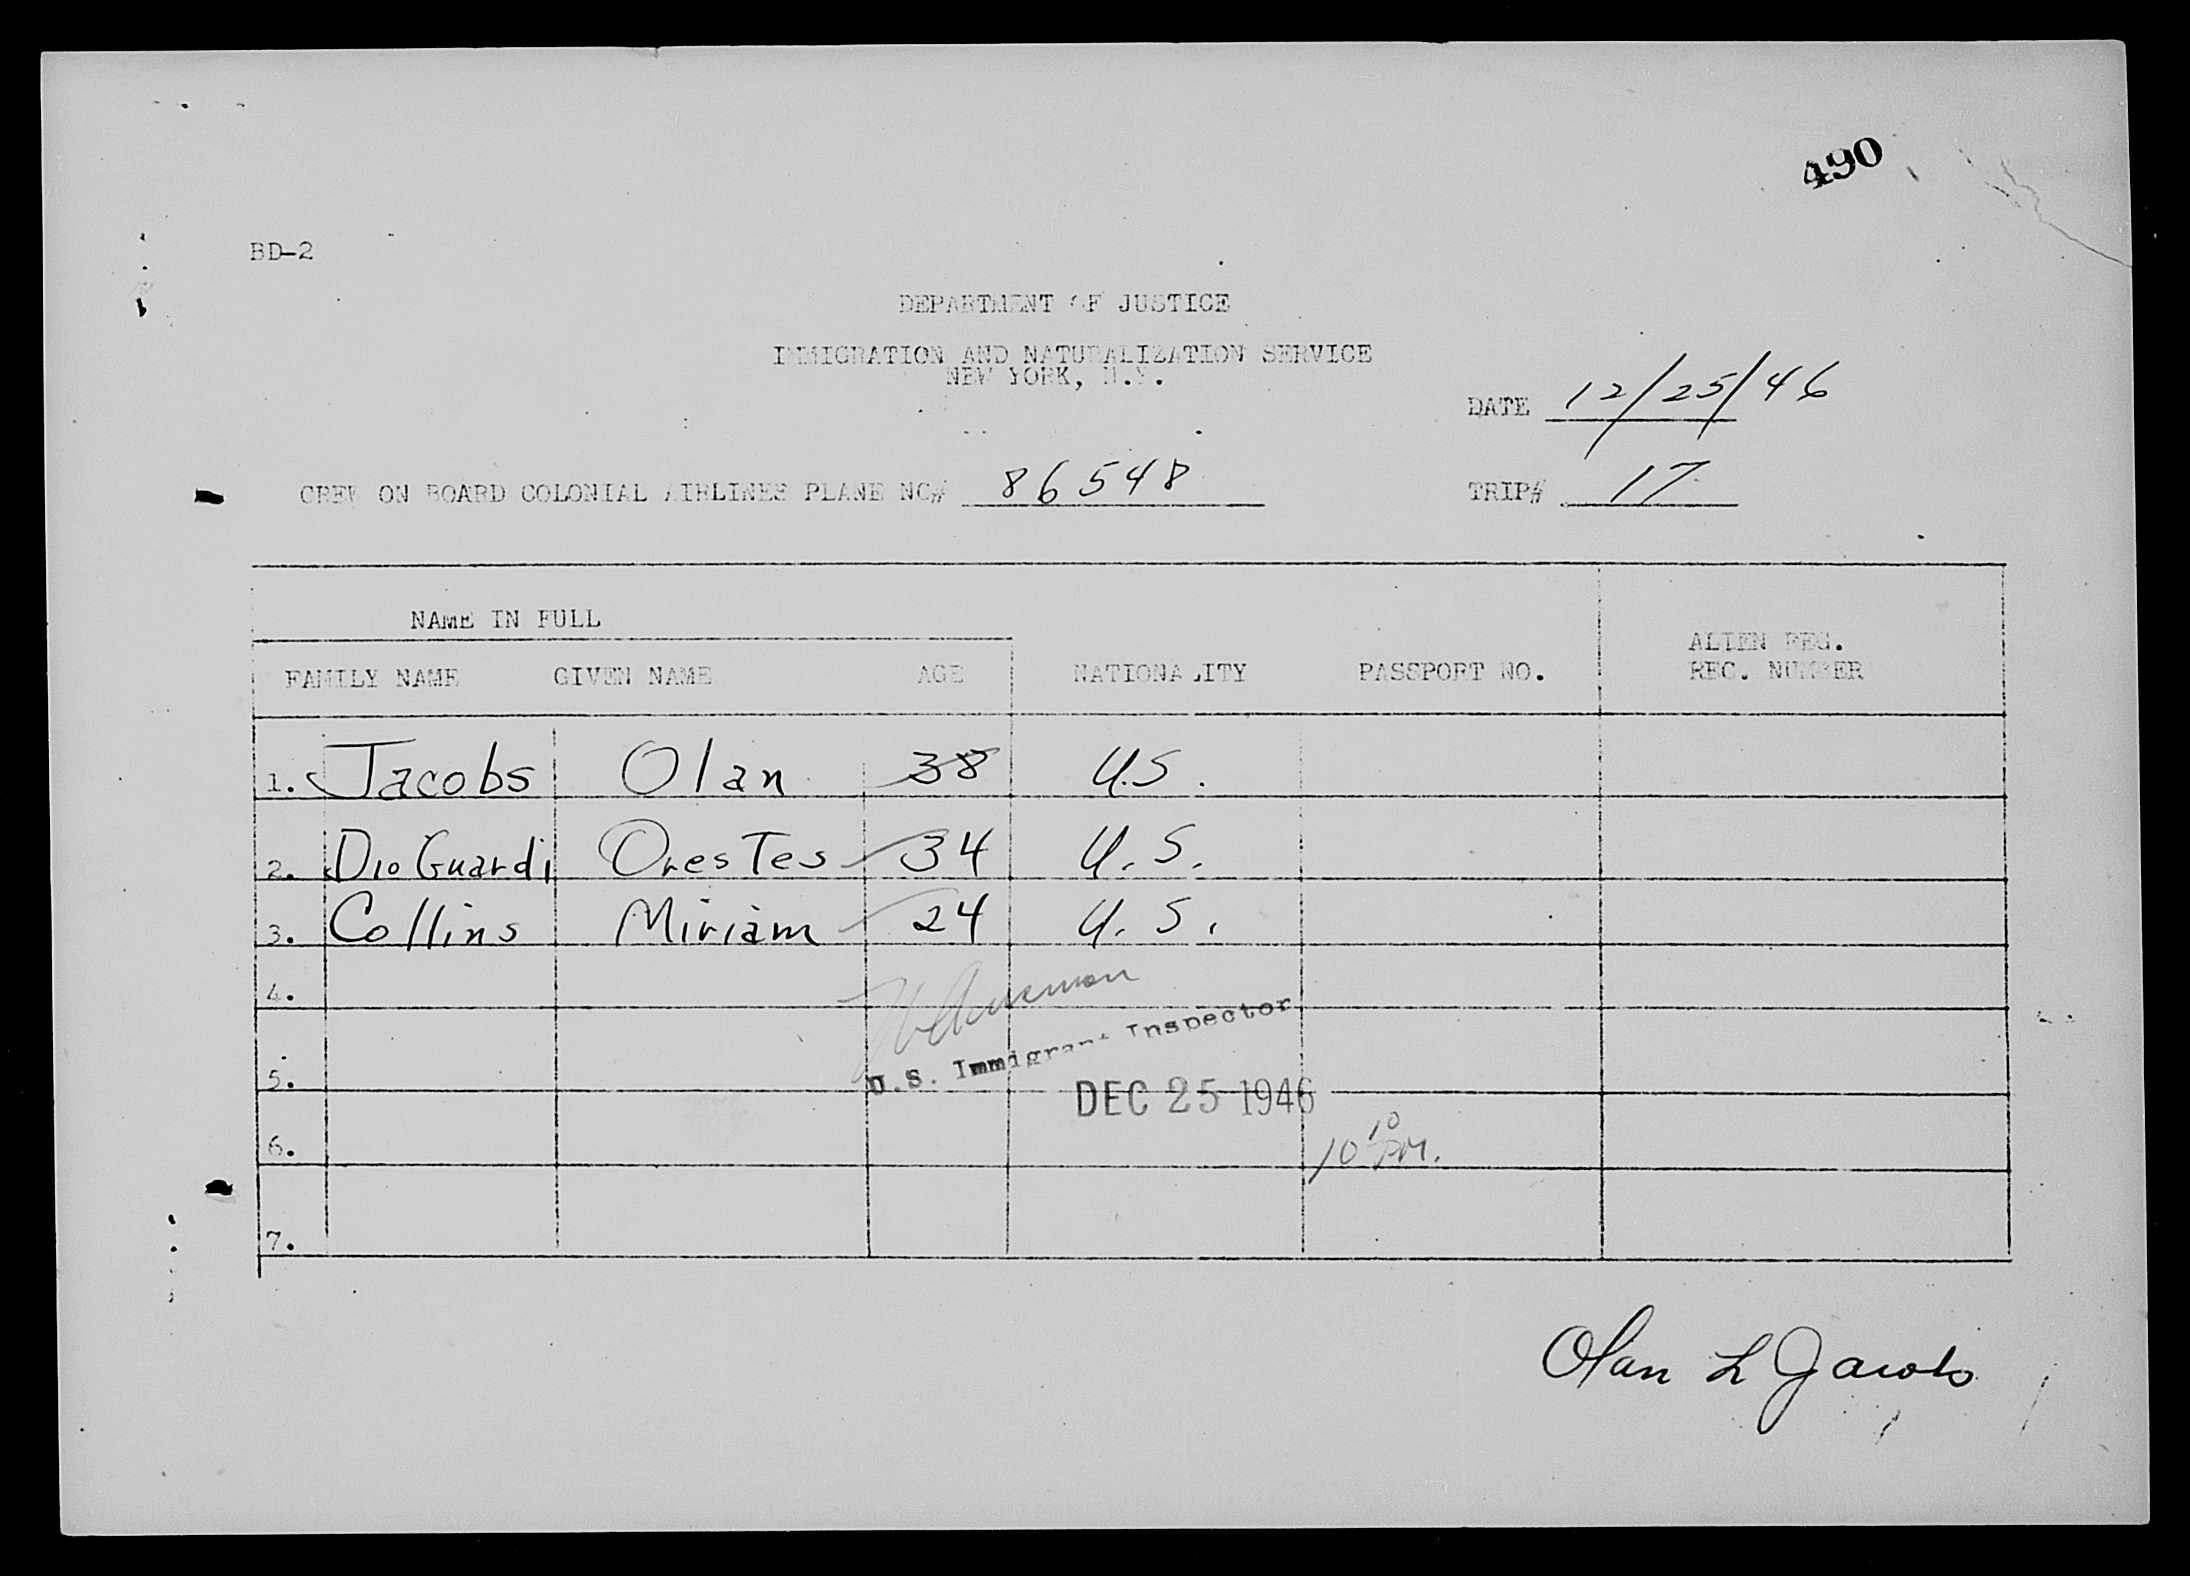 490
BD-2
DEPARTMENT OF JUSTICE
IMMIGRATION AND NATURALIZATION SERVICE
NEW YORK, N.Y.
DATE 12/25/46
CREW ON BOARD COLONIAL AIRLINES PLANE NC# 86548 TRIP# 17
NAME IN FULL
FAMILY NAME GIVEN NAME AGE NATIONALITY PASSPORT NO. ALIEN REG. REC. NUMBER
1. Jacobs Olan 38 U.S.
2. DioGuardi Orestes 34 U.S.
3. Collins Miriam 24 U.S.
4.
U.S. Immigrant Inspector
5.
DEC 25 1946
6. 10 10 PM.
7.
Olan L Jacobs